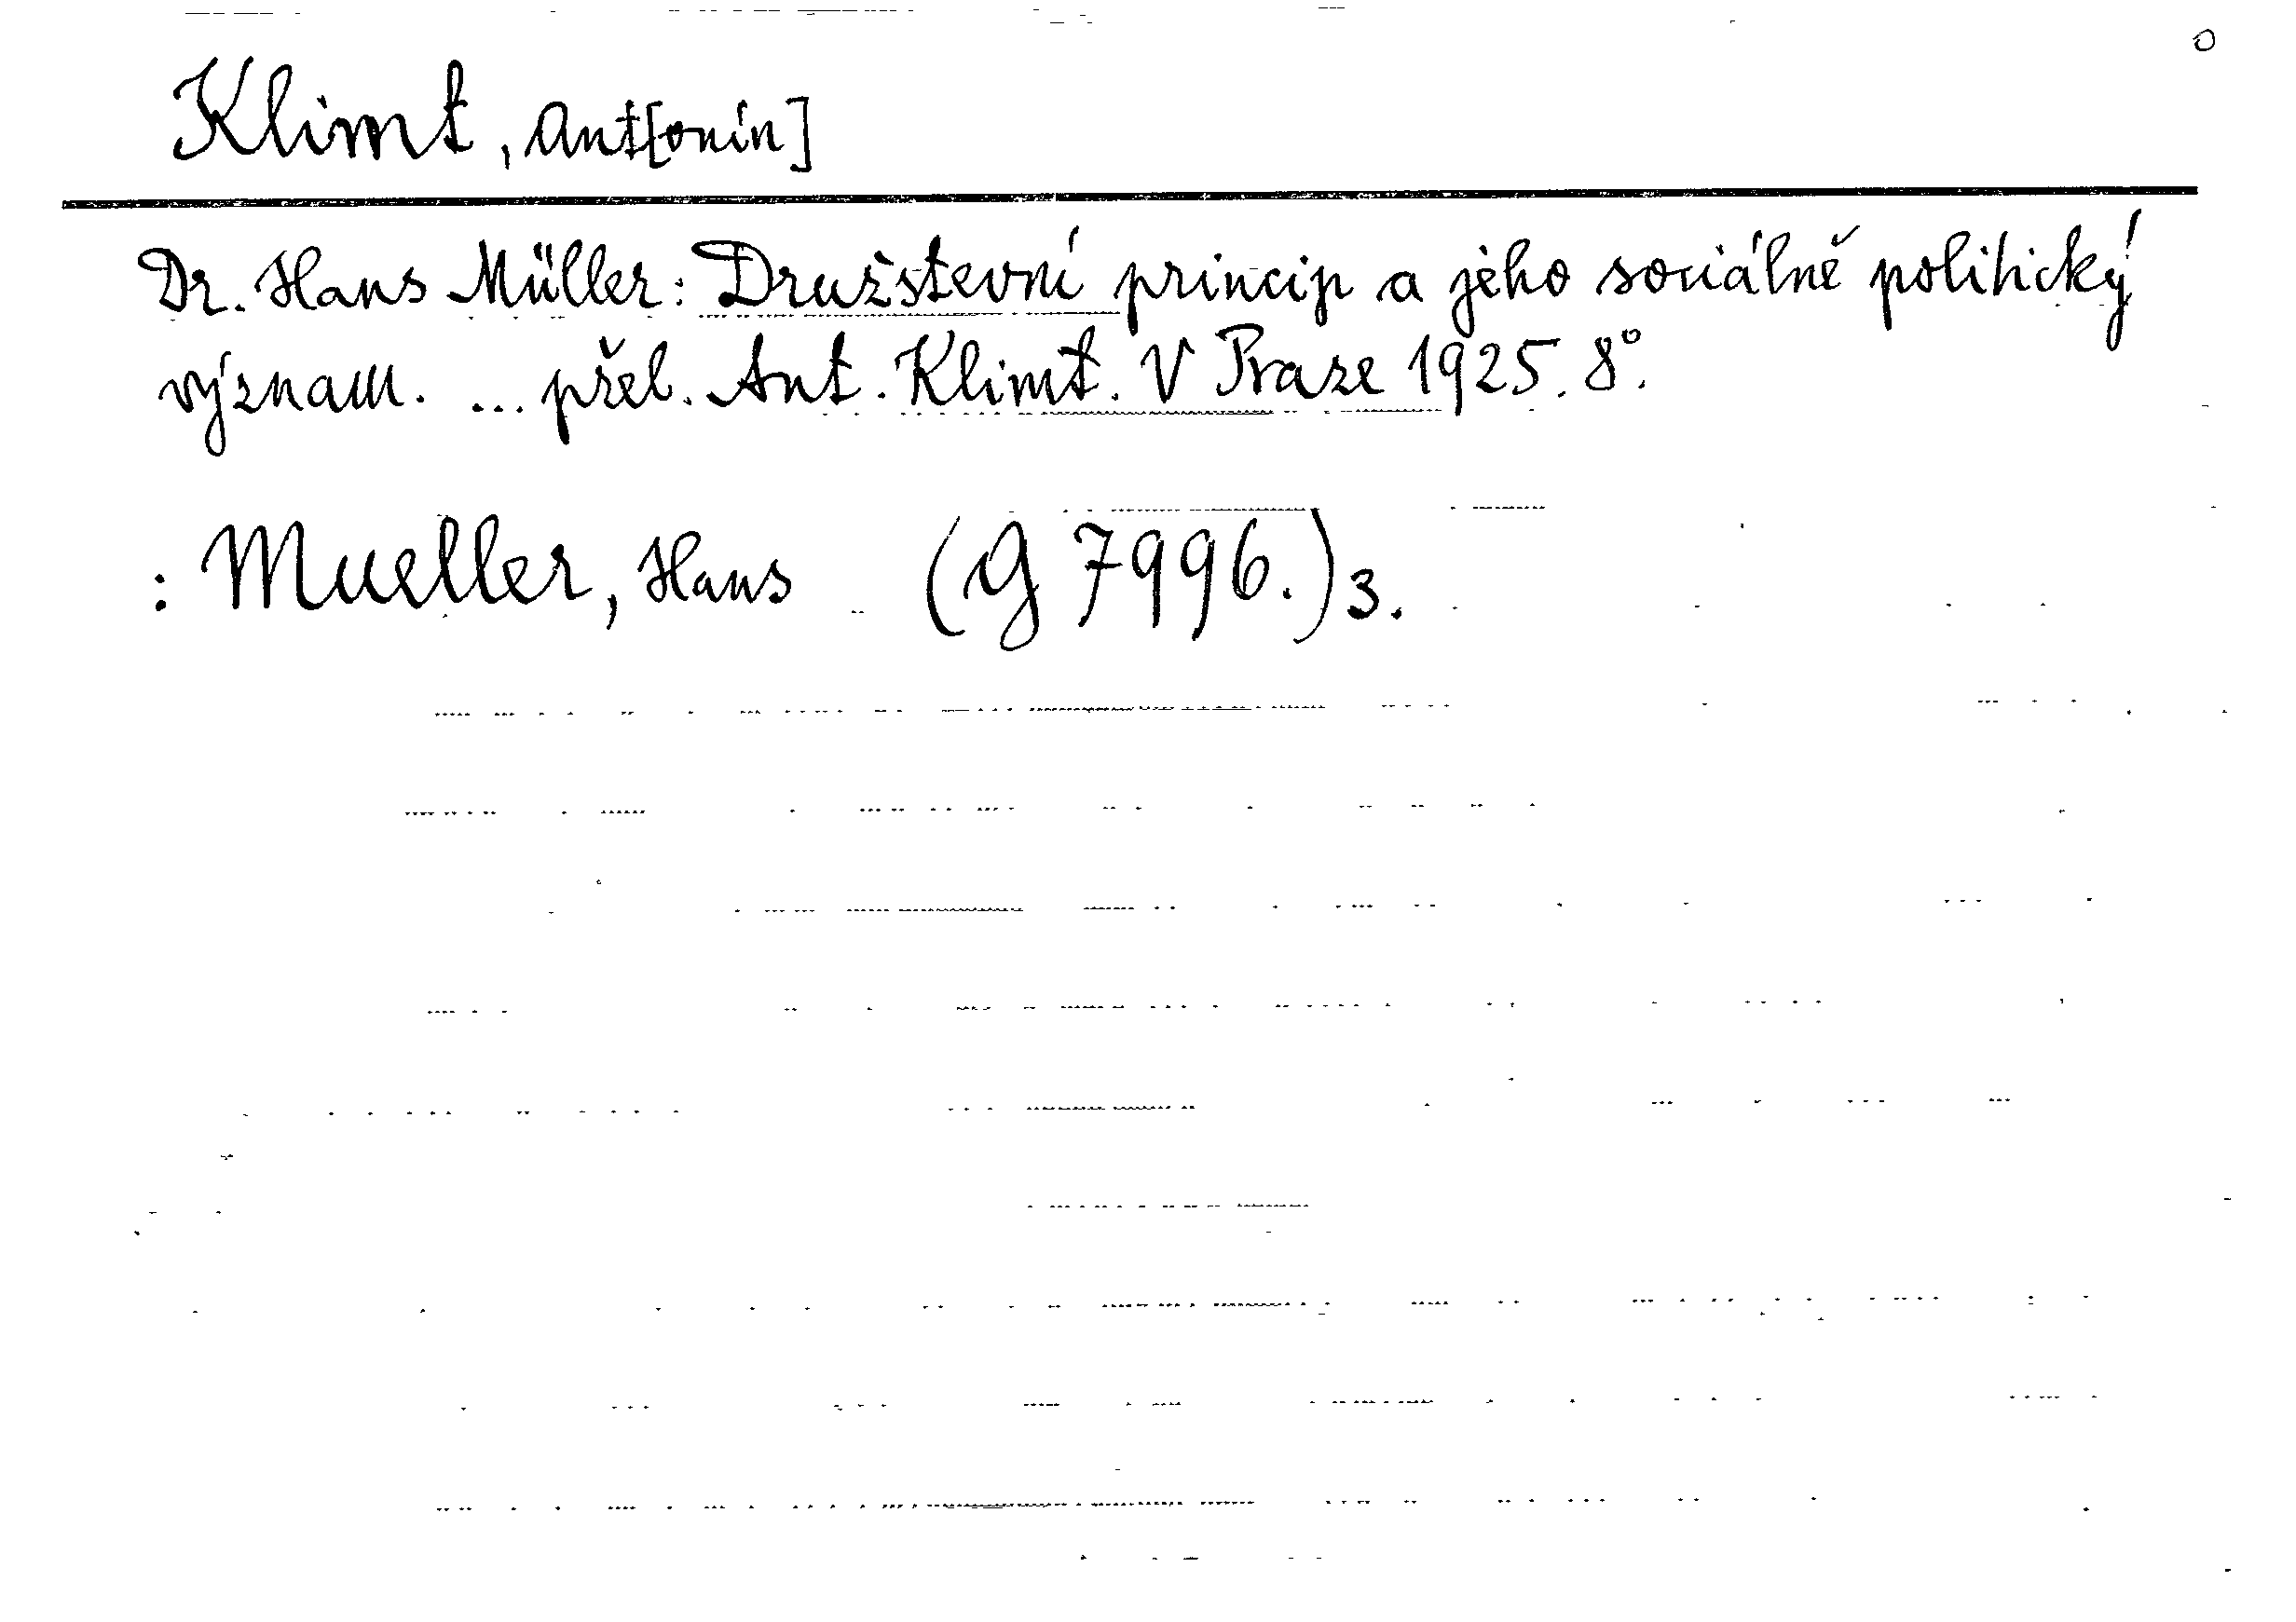 Klimt, Ant[onín]
Dr. Hans Müller: Družstevní princip a jeho sociálně politický
význam. ... přel. Ant. Klimt. V Praze 1925. 8°.
: Mueller, Hans (G 7996.) 3.